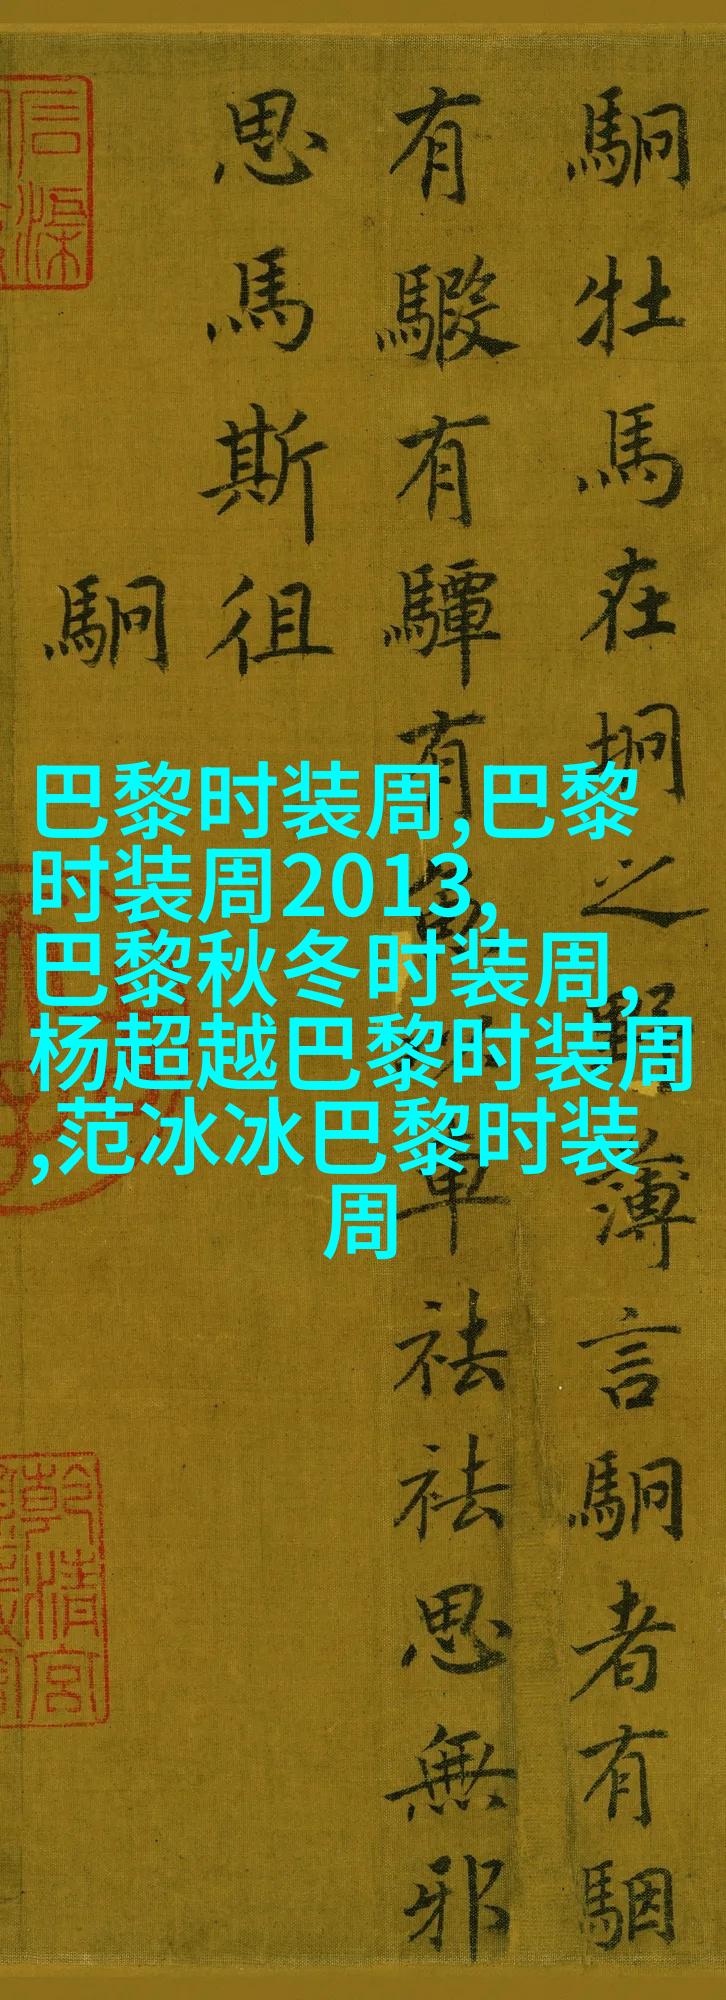 駉牡馬在坰之野薄言駉者有駰
有騢有驔有魚以車祛祛思無邪
思馬斯徂
駉
巴黎时装周,巴黎
时装周2013,
巴黎秋冬时装周,
杨超越巴黎时装周
,范冰冰巴黎时装
周
乾清宮